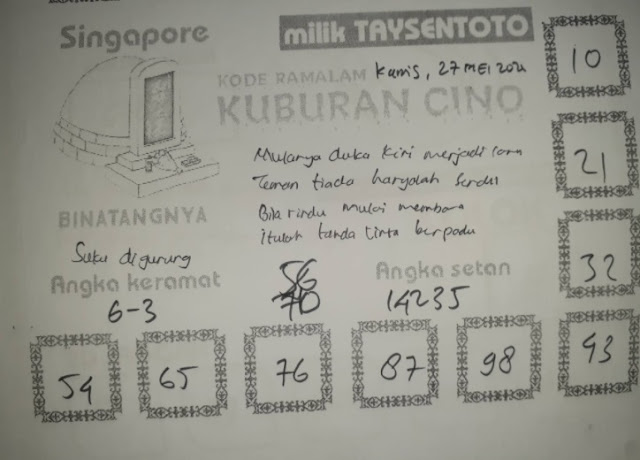 Singapore
milik TAYSENTOTO
10
KODE RAMALAM Kamis, 27 MEI 202
KUBURAN CINO
Mulanya duka kini menjadi
Teman tiada hanyalah
21
Bila rindu mulai membara
BINATANGNYA
itulah tanda cinta berpadu
Suka digunung
32
Angka keramat
Angka setan
6-3
70
14235
54
65
76
87
98
93